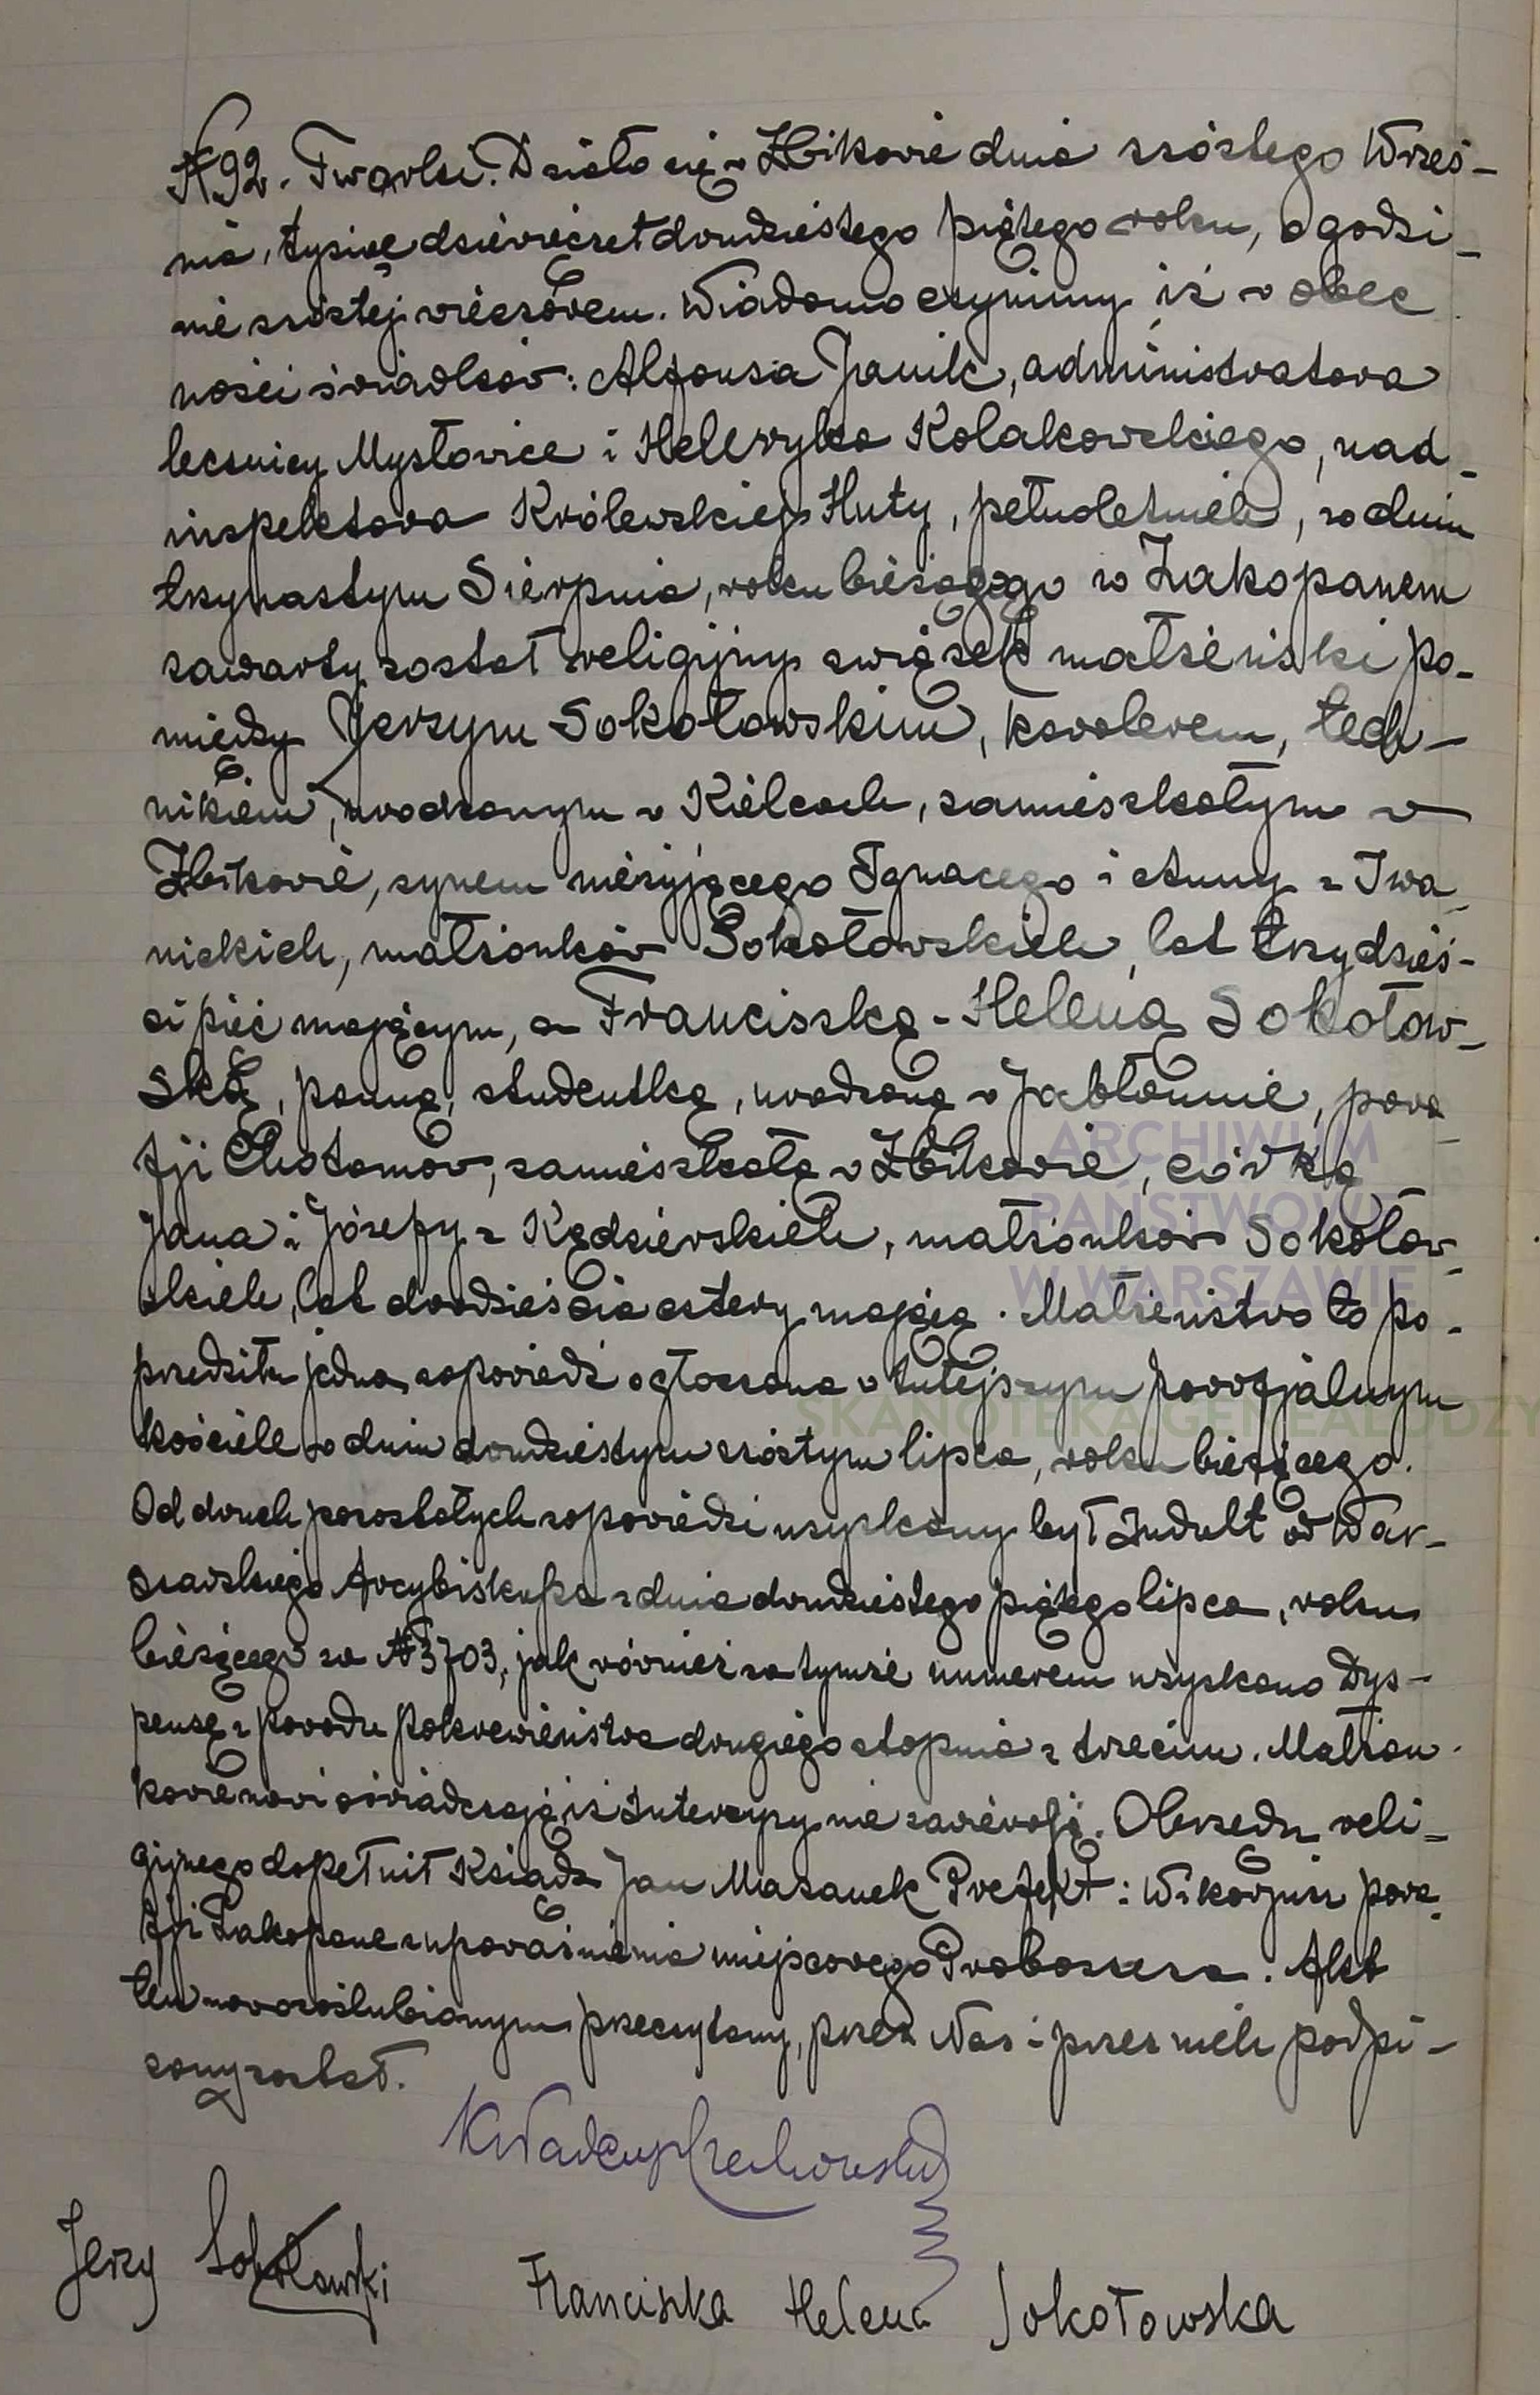 №92. Tworki. Działo się w Żbikowie dnia szóstego Wrześ-
nia, tysiąc dziewięćset dwudziestego piątego roku, o godzi-
nie szóstej wieczorem. Wiadomo czynimy, iż w obec
ności świadków: Alfonsa Janik, administratora
lecznicy Mysłowice i Henryka Kolakowskiego, nad-
inspektora Królewskiej Huty, pełnoletnich, w dniu
trzynastym Sierpnia, roku bieżącego w Zakopanem
zawarty został religijny związek małżeński po-
między Jerzym Sokołowskim, kawalerem, tech-
nikiem, urodzonym w Kielcach, zamieszkałym w
Żbikowie, synem nieżyjącego Ignacego i Anny z Iwa
nickich, małżonków Sokołowskich, lat trzydzieś-
ci pięć mającym, a Franciszką-Heleną Sokołow-
ską, panną, studentką, urodzoną w Jabłonnie, para
fji Chotomów, zamieszkałą w Żbikowie, córką
Jana i Józefy z Kędzierskich, małżonków Sokołow-
skich, lat dwadzieścia cztery mającą. Małżeństwo to po-
przedziła jedna zapowiedź ogłoszona w tutejszym parafjalnym
kościele w dniu dwudziestym szóstym lipca, roku bieżącego.
Od dwuch pozostałych zapowiedzi uzyskany był Indult od War-
szawskiego Arcybiskupa z dnia dwudziestego piątego lipca, roku
bieżącego za №3703, jak również za tymże numerem uzyskano Dys-
pensę z powodu pokrewieństwa drugiego stopnia z trzecim. Małżon-
kowie nowi oświadczają iż Intercyzy nie zawierali. Obrzędu reli-
gijnego dopełnił Ksiądz Jan Mazanek Prefekt i Wikarjusz para
fji Zakopane z upoważnienia miejscowego Proboszcza. Akt
ten nowozaślubionym przeczytany, przez Nas i przez nich podpi-
sany został.
Jerzy Sokołowski
Franciszka Helena Sokołowska
ARCHIWUM
PAŃSTWOWE
W WARSZAWIE
SKANOTEKA GENEALODZY